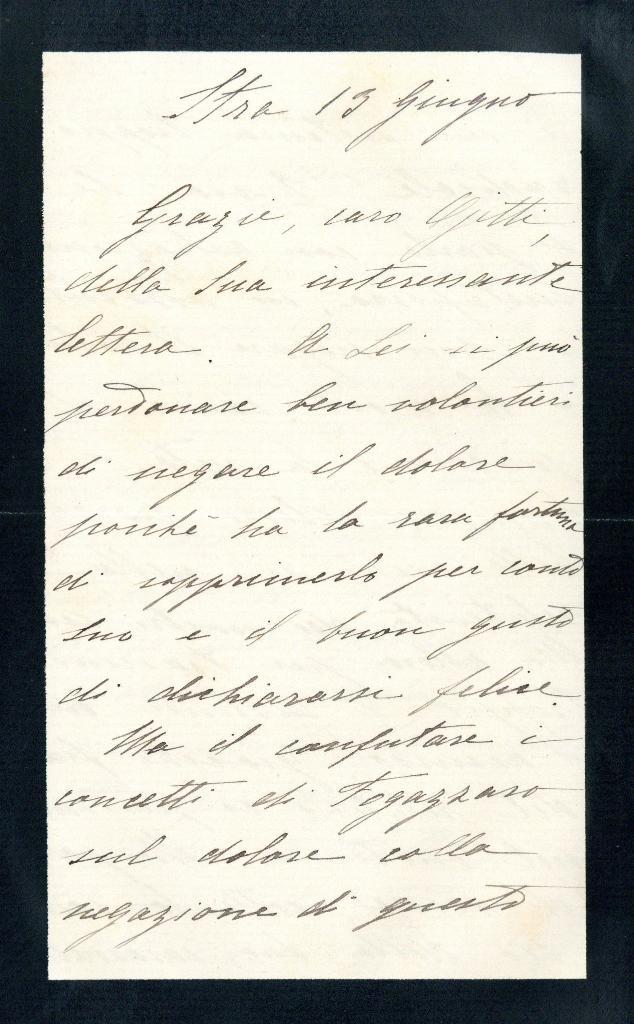 Stra 13 Giugno
Grazie, caro Gjitti,
della Sua interessante
lettera. A Lei si può
perdonare ben volontieri
di negare il dolore
poiché ha la rara fortuna
di sopprimerlo per conto
Suo e il buon gusto
di dichiararsi felice.
Ma il confutare i
concetti di Fogazzaro
sul dolore colla
negazione di questo